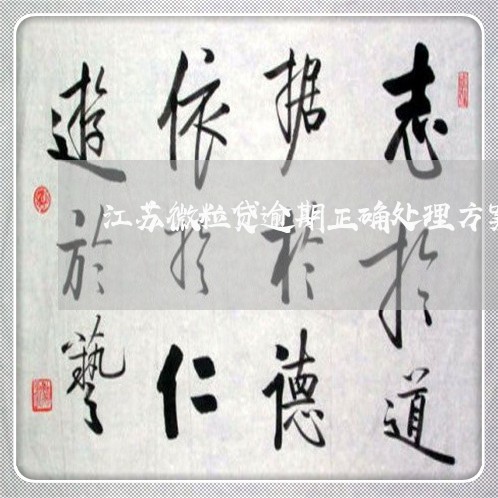 志於道
据於德
依於仁
遊於藝
江苏微粒贷逾期正确处理方